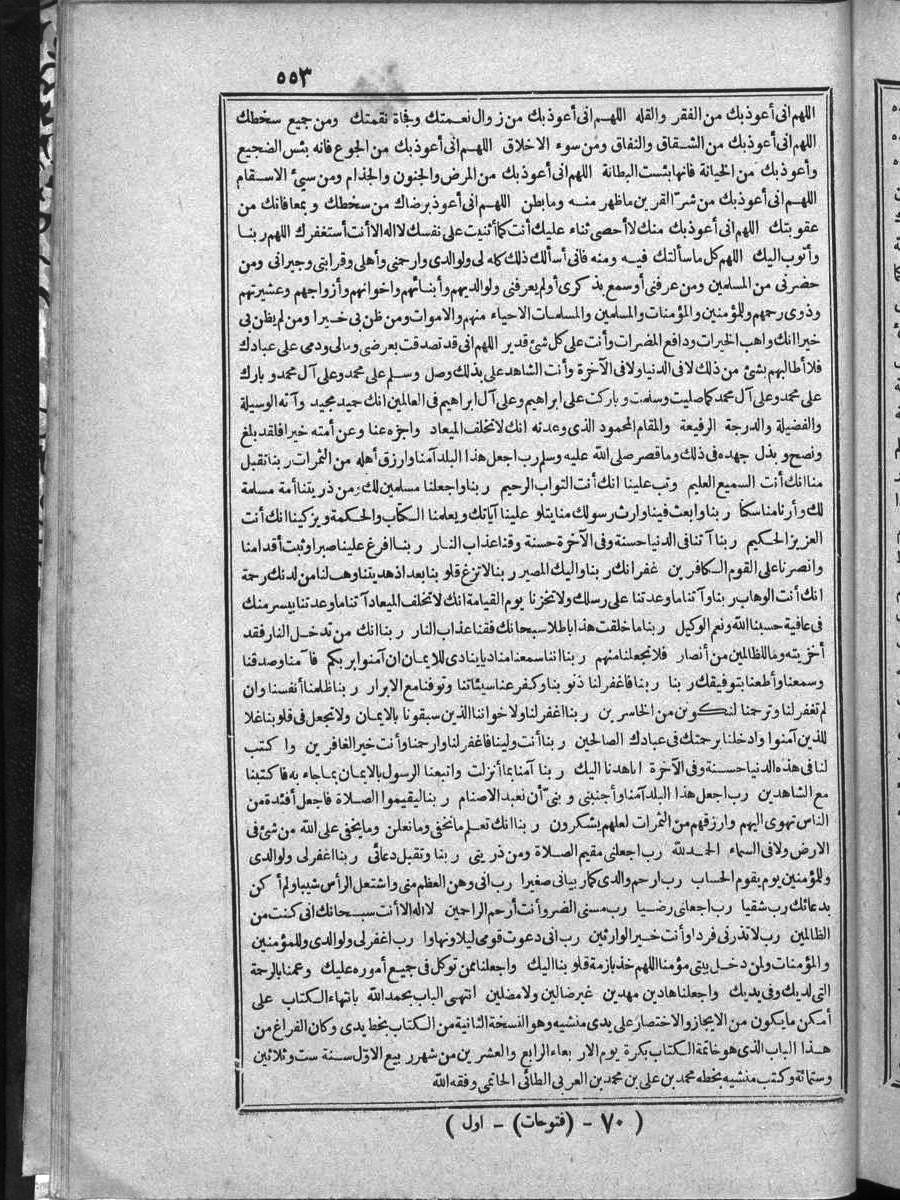 ٥٥٣
اللهم انى أعوذبك من الفقر والقله اللهم انى أعوذبك من زوال نعمتك وفجاة نقمتك ومن جميع سخطك
اللهم انى أعوذبك من الشقاق والنفاق ومن سوء الاخلاق اللهم انى أعوذبك من الجوع فانه بئس الضجيع
وأعوذبك من الخيانة فانها بئست البطانة اللهم انى أعوذبك من المرض والجنون والجذام ومن سيئ الاسقام
اللهم انى أعوذبك من شر القرين ماظهر منه ومابطن اللهم انى أعوذ برضاك من سخطك وبمعافاتك من
عقوبتك اللهم انى أعوذبك منك لا أحصى ثناء عليك أنت كما أثنيت على نفسك لا اله الا أنت أستغفرك اللهم ربنا
وأتوب اليك اللهم كل ماسألتك فيه ومنه فانى أسألك ذلك كله لى ولوالدى وارحمنى وأهلى وقرابتى وجيرانى ومن
حضرنى من المسلمين ومن عرفنى أوسمع بذكرى أولم يعرفنى ولوالديهم وأبنائهم واخوانهم وأزواجهم وعشيرتهم
وذوى رحمهم وللمؤمنين والمؤمنات والمسلمين والمسلمات الاحياء منهم والاموات ومن ظن بى خيرا ومن لم يظن بى
خيرا انك واهب الخيرات ودافع المضرات وأنت على كل شئ قدير اللهم انى قد تصدقت بعرضى ومالى ودمى على عبادك
فلا أطالبهم بشئ من ذلك لافى الدنيا ولافى الآخرة وأنت الشاهد على بذلك وصل وسلم على محمد وعلى آل محمد وبارك
على محمد وعلى آل محمد كماصليت وسلمت وباركت على ابراهيم وعلى آل ابراهيم فى العالمين انك حميد مجيد وآته الوسيلة
والفضيلة والدرجة الرفيعة والمقام المحمود الذى وعدته انك لاتخلف الميعاد واجزه عنا وعن أمته خيرا فلقد بلغ
ونصح وبذل جهده فى ذلك وماقصر صلى الله عليه وسلم رب اجعل هذا البلد آمنا وارزق أهله من الثمرات ربنا تقبل
منا انك أنت السميع العليم وتب علينا انك أنت التواب الرحيم ربنا واجعلنا مسلمين لك ومن ذريتنا أمة مسلمة
لك وأرنا مناسكنا ربنا وابعث فينا وارث رسولك منا يتلو علينا آياتك ويعلمنا الكتاب والحكمة ويزكينا انك أنت
العزيز الحكيم ربنا آتنا فى الدنيا حسنة وفى الآخرة حسنة وقنا عذاب النار ربنا افرغ علينا صبرا وثبت أقدامنا
وانصرنا على القوم الكافرين غفرانك ربنا واليك المصير ربنا لاتزغ قلوبنا بعد اذ هديتنا وهب لنا من لدنك رحمة
انك أنت الوهاب ربنا وآتنا ماوعدتنا على رسلك ولاتخزنا يوم القيامة انك لاتخلف الميعاد آتنا ماوعدتنا بيسر منك
فى عافية حسبنا الله ونعم الوكيل ربنا ماخلقت هذا باطلا سبحانك فقنا عذاب النار ربنا انك من تدخل النار فقد
أخزيته وما للظالمين من أنصار فلاتجعلنا منهم ربنا اننا سمعنا مناديا ينادى للايمان ان آمنوا بربكم فآمنا وصدقنا
وسمعنا وأطعنا بتوفيقك ربنا ربنا فاغفر لنا ذنوبنا وكفر عنا سيئاتنا وتوفنا مع الابرار ربنا ظلمنا أنفسنا وان
لم تغفر لنا وترحمنا لنكونن من الخاسرين ربنا اغفر لنا ولاخواننا الذين سبقونا بالايمان ولاتجعل فى قلوبنا غلا
للذين آمنوا وادخلنا برحمتك فى عبادك الصالحين ربنا أنت ولينا فاغفر لنا وارحمنا وأنت خير الغافرين واكتب
لنا فى هذه الدنيا حسنة وفى الآخرة اناهدنا اليك ربنا آمنا بما أنزلت واتبعنا الرسول بالايمان بماجاء به فاكتبنا
مع الشاهدين رب اجعل هذا البلد آمنا وأجنبنى وبنى أن نعبد الاصنام ربنا ليقيموا الصلاة فاجعل أفئدة من
الناس تهوى اليهم وارزقهم من الثمرات لعلهم يشكرون ربنا انك تعلم مانخفى ومانعلن ومايخفى على الله من شئ فى
الارض ولافى السماء الحمد لله رب اجعلنى مقيم الصلاة ومن ذريتى ربنا وتقبل دعائى ربنا اغفر لى ولوالدى
وللمؤمنين يوم يقوم الحساب رب ارحم والدى كما ربيانى صغيرا رب انى وهن العظم منى واشتعل الرأس شيبا ولم أكن
بدعائك رب شقيا رب اجعلنى رضيا رب مسنى الضر وأنت أرحم الراحمين لا اله الا أنت سبحانك انى كنت من
الظالمين رب لاتذرنى فردا وأنت خير الوارثين رب انى دعوت قومى ليلا ونهارا رب اغفر لى ولوالدى وللمؤمنين
والمؤمنات ولمن دخل بيتى مؤمنا اللهم خذ بازمة قلوبنا اليك واجعلنا ممن توكل فى جميع أموره عليك وعمنا بالرحمة
التى لديك وفى يديك واجعلنا هادين مهدين غير ضالين ولامضلين انتهى الباب بحمد الله بانتهاء الكتاب على
أمكن مايكون من الايجاز والاختصار على يدى منشيه وهو النسخة الثانية من الكتاب بخط يدى وكان الفراغ من
هذا الباب الذى هو خاتمة الكتاب بكرة يوم الاربعاء الرابع والعشرين من شهر ربيع الاول سنة ست وثلاثين
وستمائة وكتب منشيه بخطه محمد بن على بن محمد بن العربى الطائى الحاتمى وفقه الله
( ٧٠ - (فتوحات) - اول )